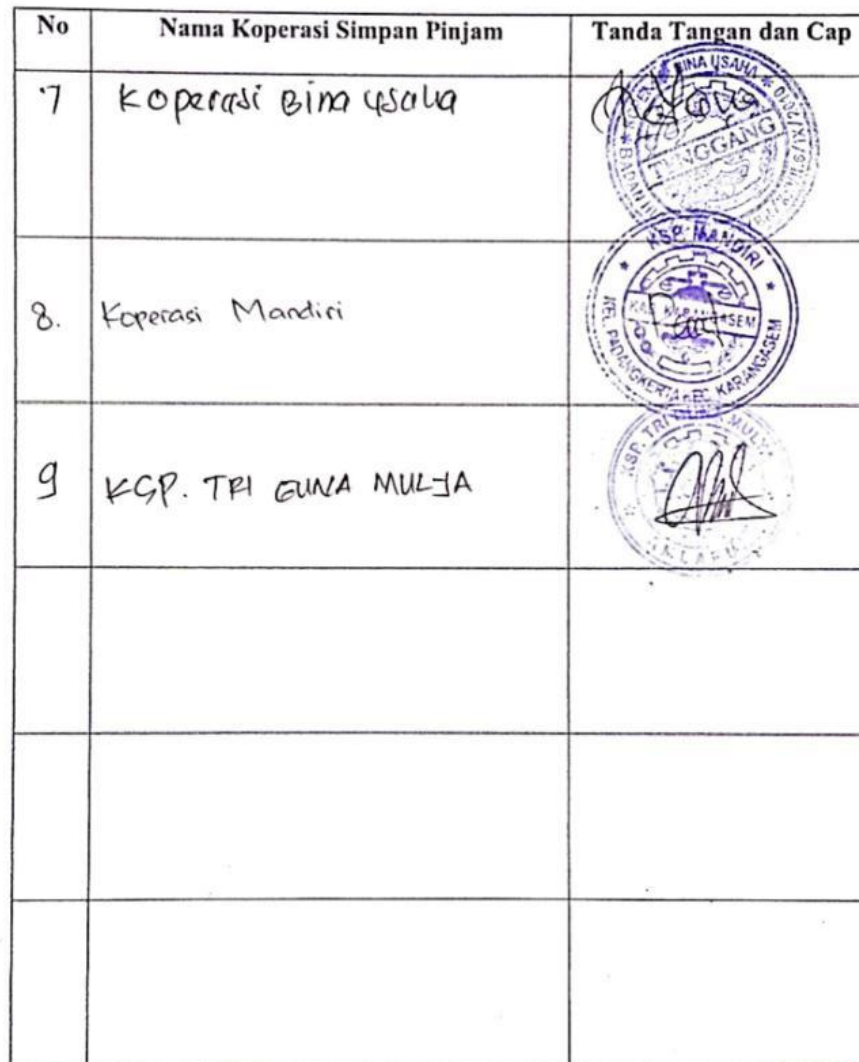 No Nama Koperasi Simpan Pinjam Tanda Tangan dan Cap
7 Koperasi Bina Usaha
BINA USAHA
TENGGANG
8. Koperasi Mandiri
KSP. MANDIRI
KAB. KARANGASEM
KEL. PADANGKERTA KEC. KARANGASEM
9 KSP. TRI GUNA MULYA
KSP. TRI GUNA MULYA